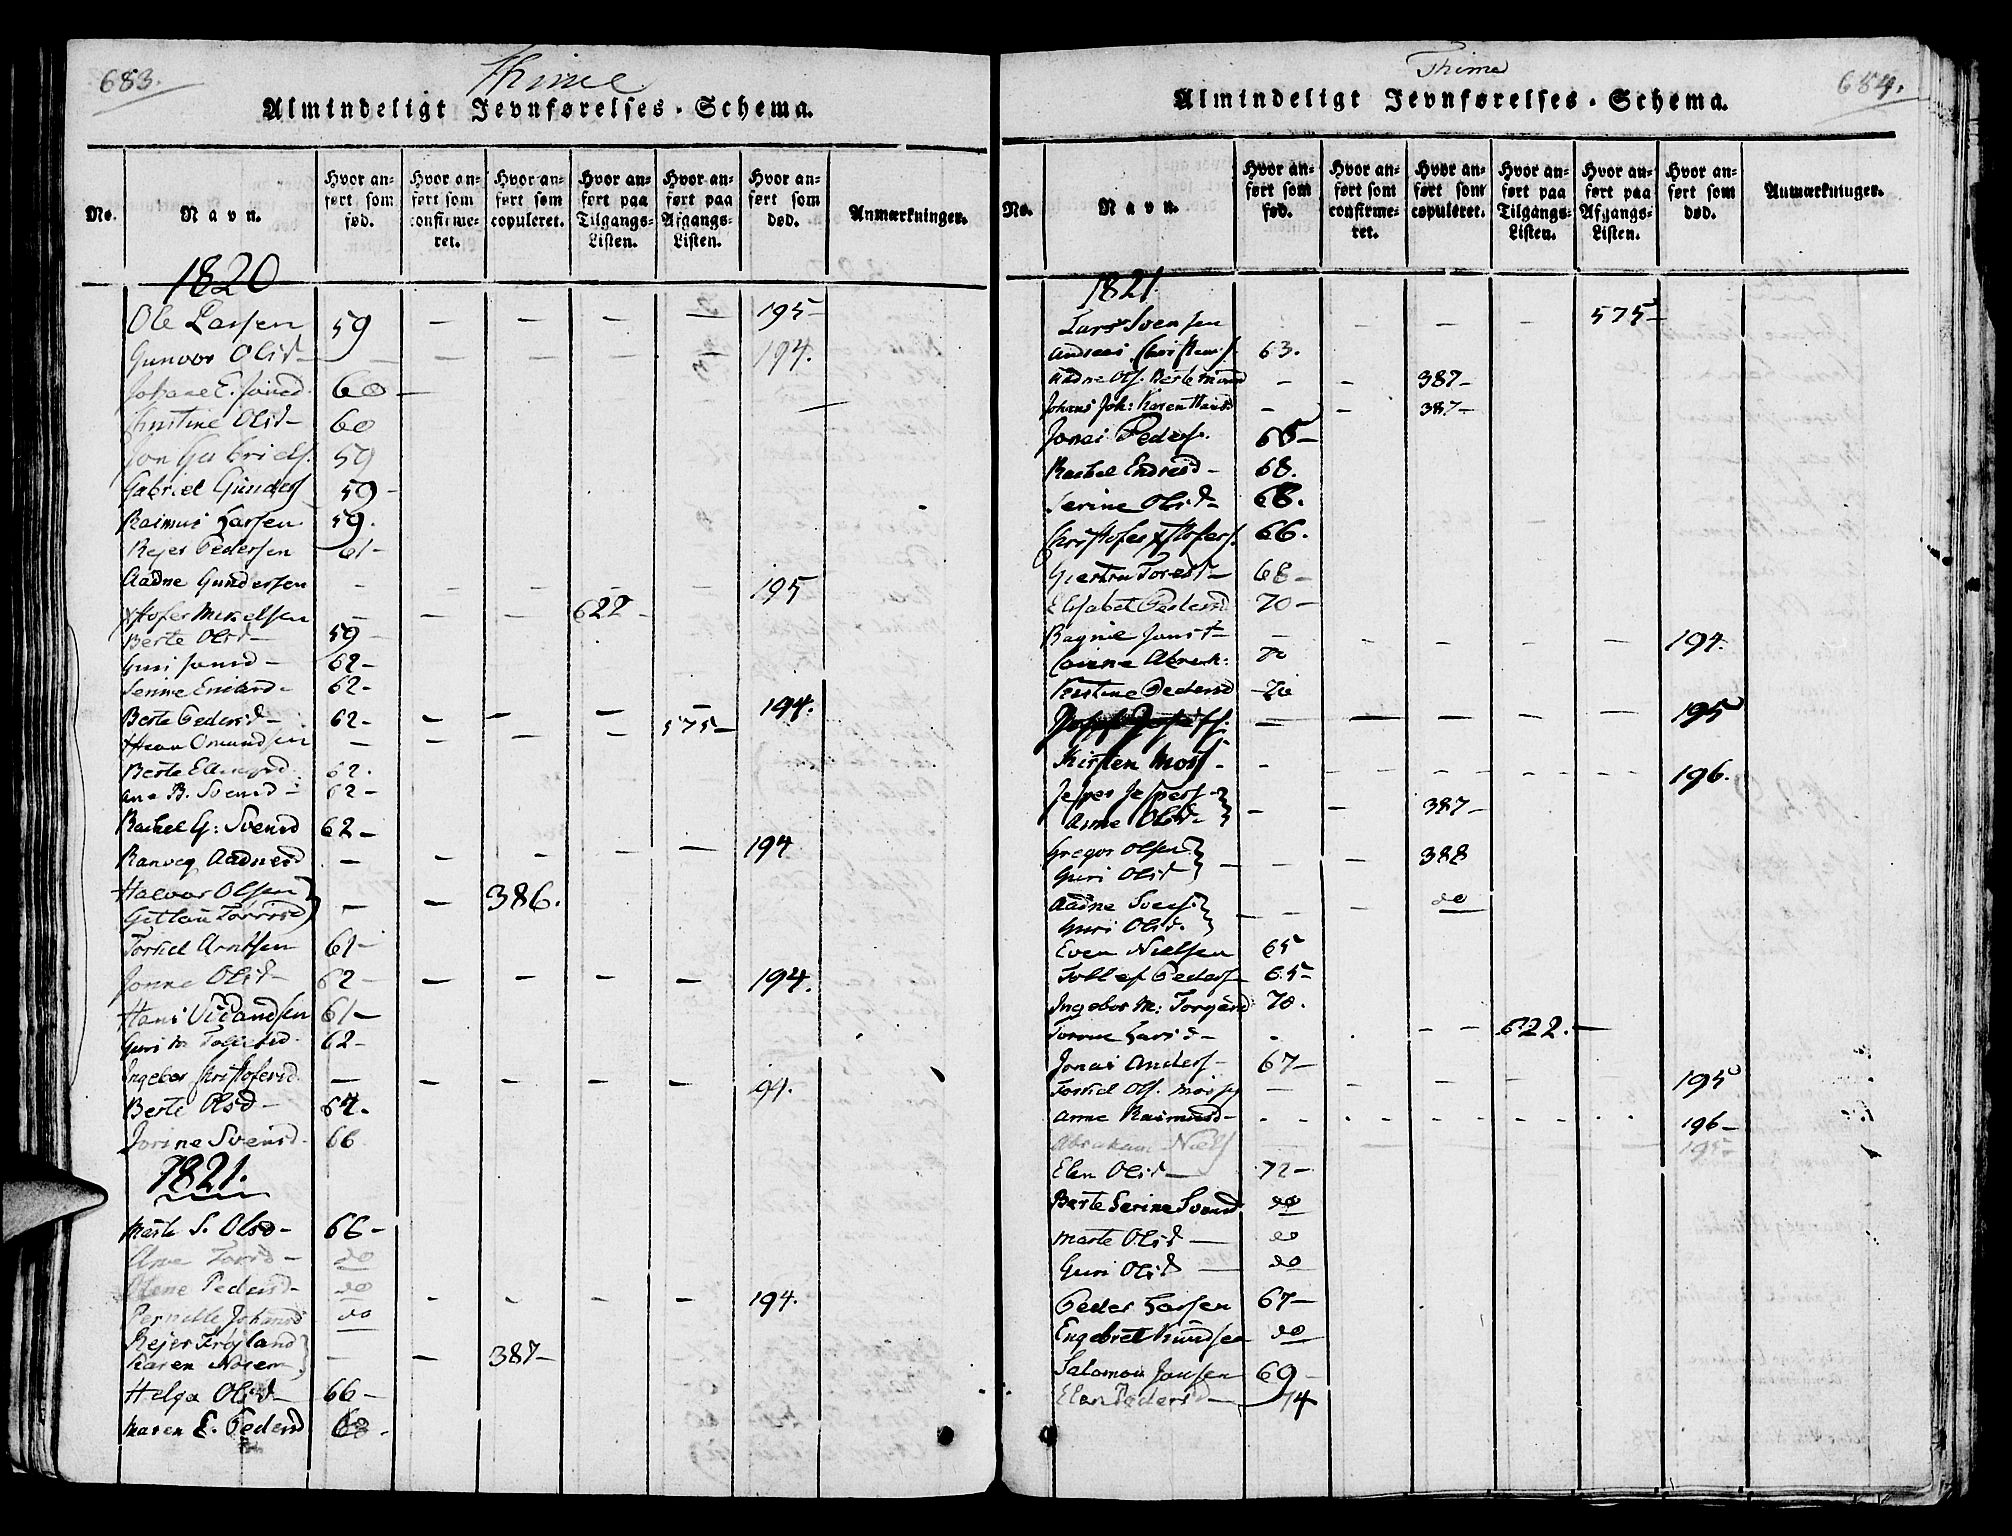 683.
Thime
Almindeligt Jevnførelses-Schema.
No.
Navn.
Hvor anført som fød.
Hvor anført som confirmeret.
Hvor anført som copuleret.
Hvor anført paa Tilgangs-Listen.
Hvor anført paa Afgangs-Listen.
Hvor anført som død.
Anmærkninger.
1820
Ole Larsen 59 — — — — 195-
Gunvor Olsd — — — — — 194.
Johane E. Jonsd 60 —
Christine Olsd- 60
Jon Gabriels. 59
Gabriel Gunders 59-
Rasmus Larsen 59.
Rejer Pedersen 61-
Aadne Gundersen — — — — — 195
Xstofer Mikelsen — — — 622-
Berte Olsd- 59-
Guri Jonsd- 62-
Serine 62-
Berte Pedersd- 62- — — — — 194.
Omundsen — — — — 575-
Berte 62.
Ane B. Svensd- 62-
Rachel G: Svensd 62-
Ranveg Aadnesd — — — — — 194
Halvor Olsen }
— — 386.
Torkel Arntsen 61-
Jonne Olsd- 62- — — — — 194.
Hans Vidandsen 61-
Guri M. 62-
Ingebor Christofersd. — — — — —
Berte Olsd- 64.
Jorine Svensd. 66
1821.
Marte S. Olsd- 66-
Ane Torsd- do
Olene Pedersd- do
Pernille Johansd do — — — — 194.
Rejer Frøjland }
Karen Norem } — — 387-
Helga Olsd- 66-
Maren E. Pedersd 68-
684.
Thime
Almindeligt Jevnførelses-Schema.
No.
Navn.
Hvor anført som fød.
Hvor anført som confirmeret.
Hvor anført som copuleret.
Hvor anført paa Tilgangs-Listen.
Hvor anført paa Afgangs-Listen.
Hvor anført som død.
Anmærkninger.
1821.
Lars Svensen — — — 575-
Andreas Christens. 63.
Aadne Ols. Berte — — 387-
Johans Joh: Karen Hansd — — 387-
Jonas Peders. 65-
Rachel Endresd- 68.
Serine Olsd- 68.
Christofer Xstofers. 66.
Giertru Toresd- 68-
Elisabet Pedersd 70-
Jonsd- — — — — — 194.
70
Kistine Pedersd 70
— — — — — 195
Kirsten — — — — — 196.
Jesper Jespers. }
Anne Olsd. } — — 387-
Gregor Olsen }
Guri Olsd } — — 388
Aadne Svens. }
Guri Olsd. } — — do
Even Nielsen 65
Tollef Peders 65-
Ingebor M: 70.
Larsd- — — — 622.-
Jonas Anders- 67-
Torkel Ols. — — — — 195
Anne Rasmusd- — — — — — 196-
Abraham Niels — — — — — 195-
Elen Olsd- 72-
Berte Serine Svensd do
Marte Olsd- do
Guri Olsd- do
Peder Larsen 67-
Engebret Knudsen do
Salomon Jonsen 69-
Elen Pedersd- 74